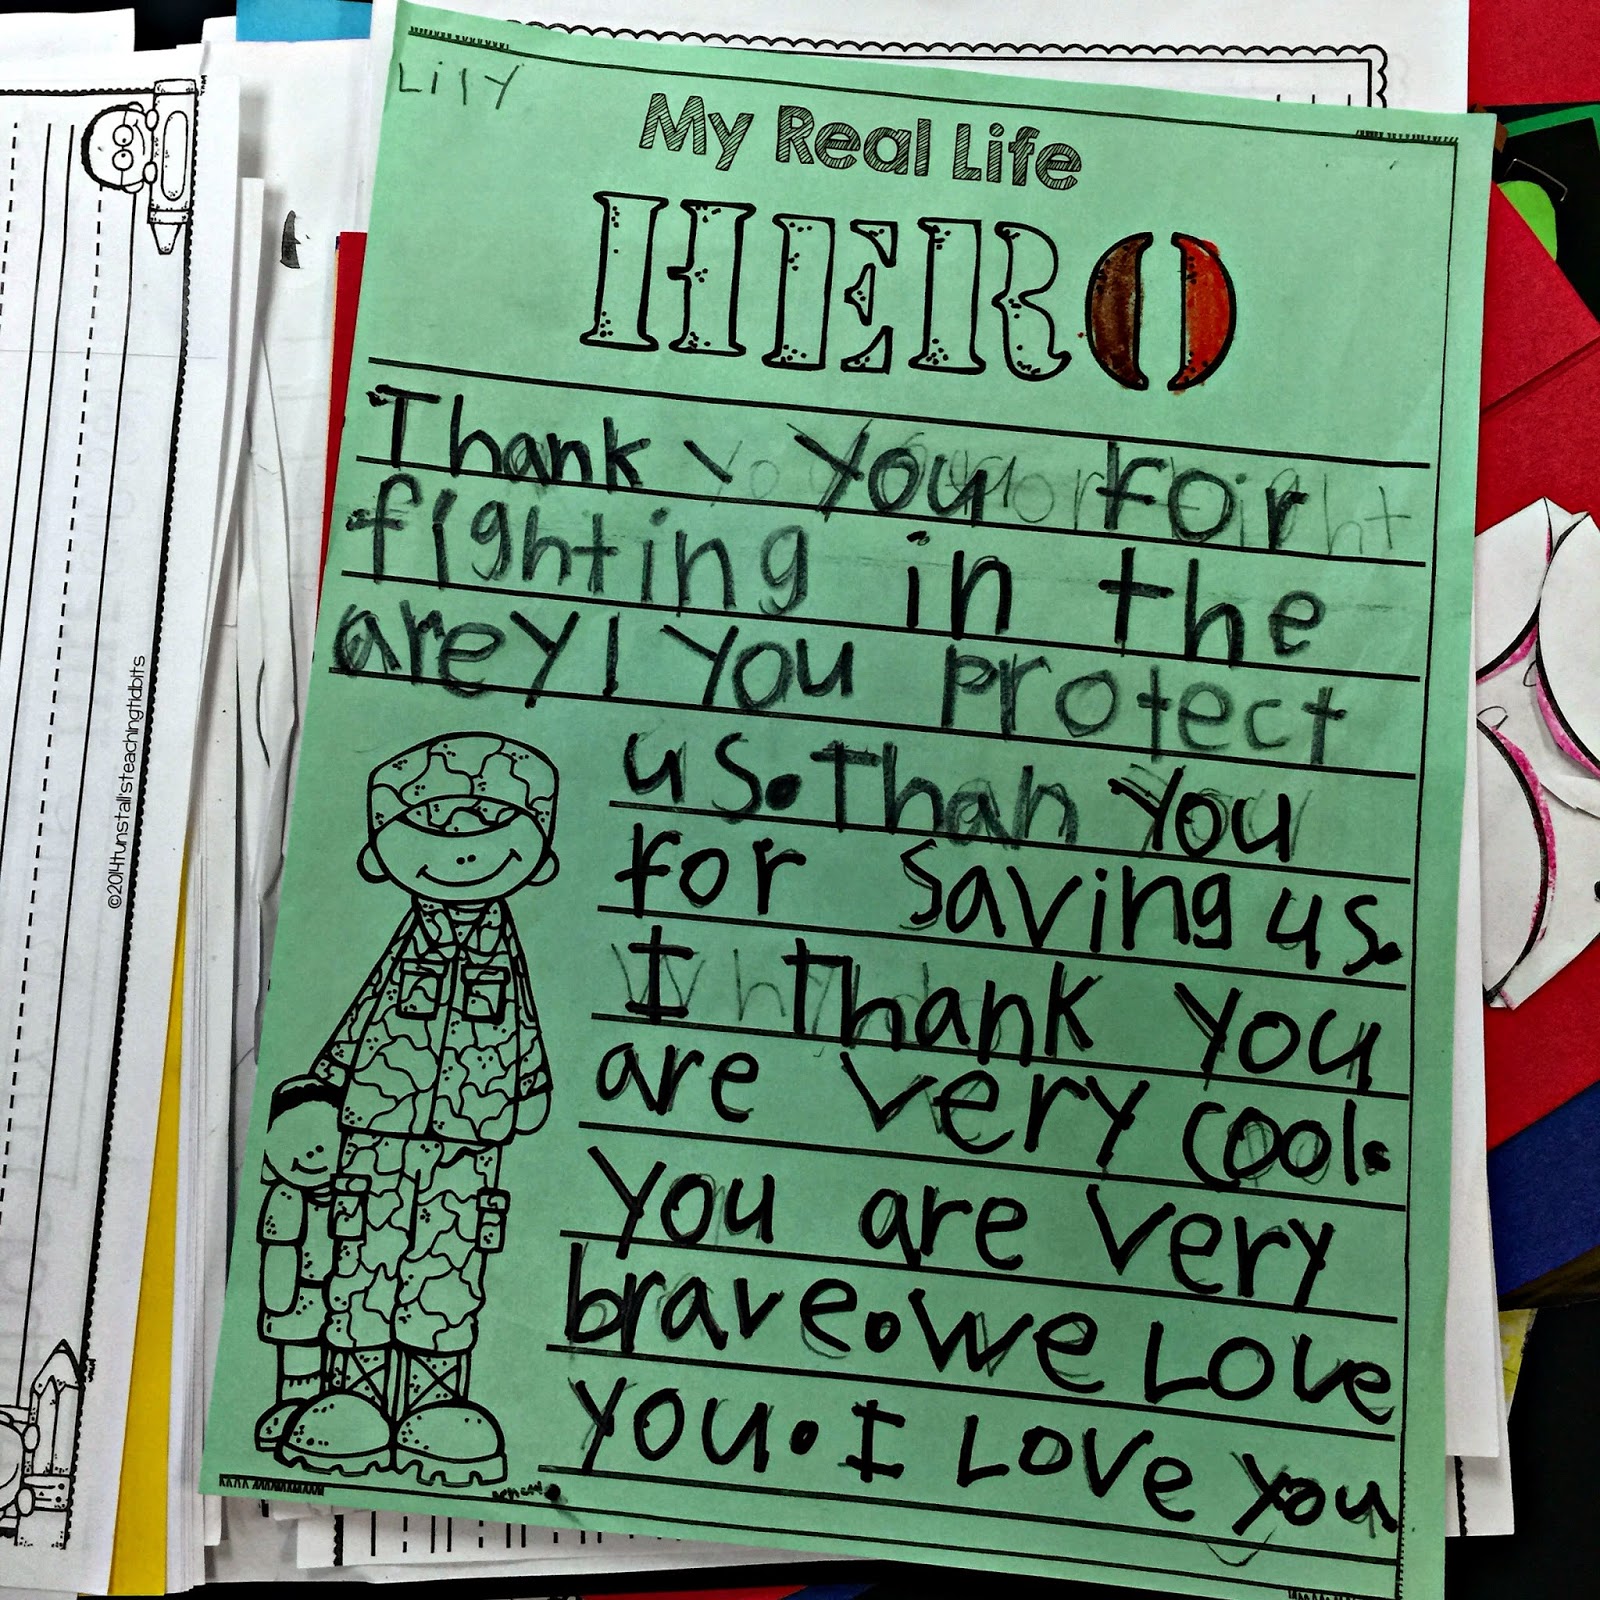 Lily
My Real Life
HERO
Thank you for
fighting in the
arey! You protect
us. Than You
for Saving us.
I thank you
are very cool.
You are very
brave. We Love
you. I Love you
©2014tunstall'steachingtidbits